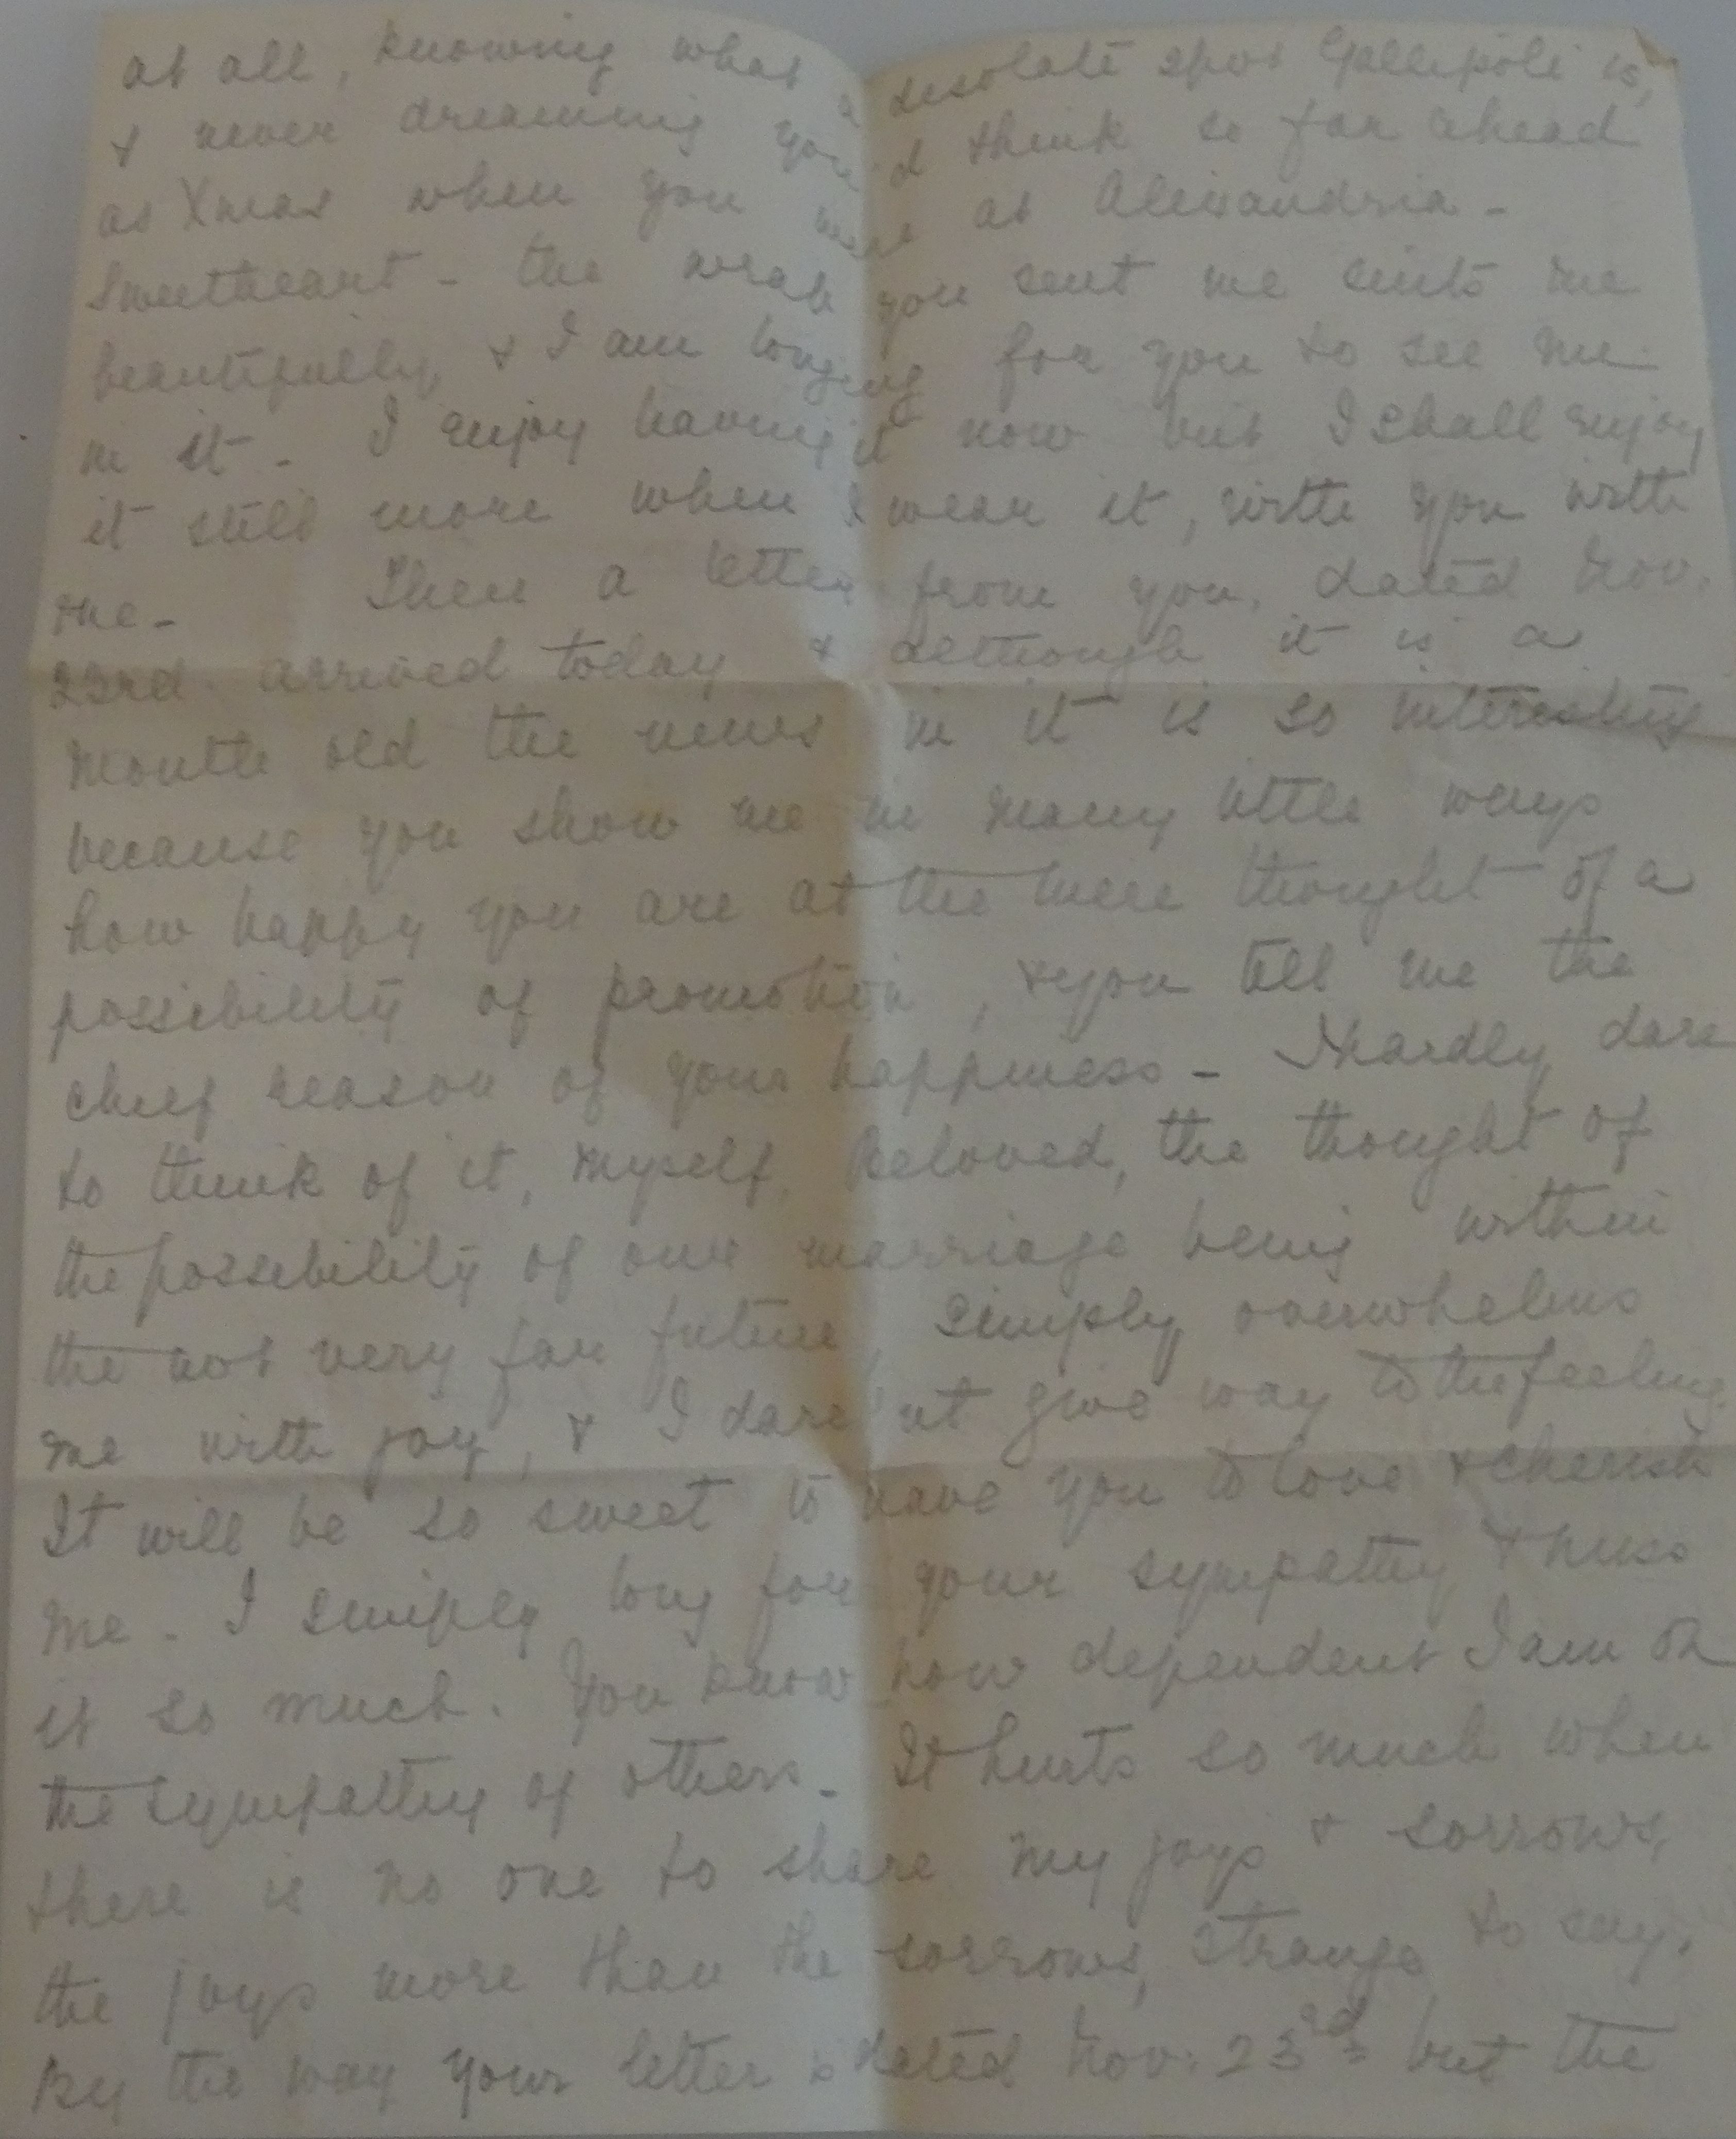 at all, knowing what a desolate spot Gallipoli is,
& never dreaming you'd think so far ahead
as Xmas when you were at Alexandria -
Sweetheart - the wrap you sent me suits me
beautifully, & I am longing for you to see me
in it - I enjoy having it now but I shall enjoy
it still more when I wear it, with you with
me - Then a letter from you, dated Nov.
23rd. arrived today & although it is a
month old the news in it is so interesting
because you show me in many little ways
how happy you are at the mere thought of a
possibility of promotion, & you tell me the
chief reason of your happiness - I hardly dare
to think of it, myself, Beloved, the thought of
the possibility of our marriage being within
the not very far future, simply overwhelms
me with joy, & I dare'nt give way to the feeling.
It will be so sweet to have you to love & cherish
me - I simply long for your sympathy & miss
it so much. You know how dependent I am on
the sympathy of others - It hurts so much when
there is no one to share my joys & sorrows,
the joys more than the sorrows, strange to say.
By the way your letter is dated Nov. 23rd but the